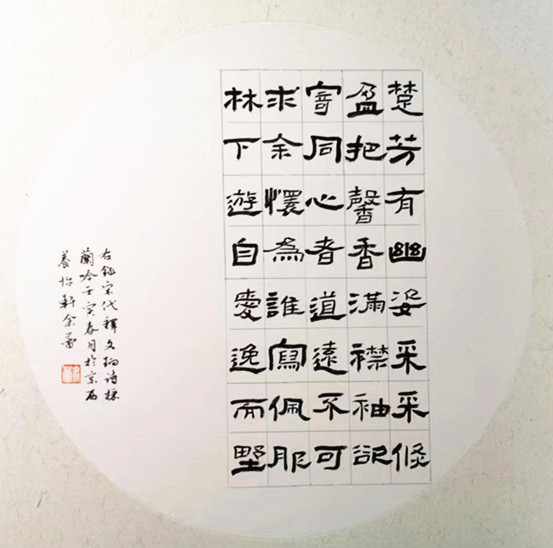 楚芳有幽姿采采倏
盈把馨香滿襟袖欲
寄同心者道遠不可
求余懷為誰寫佩服
林下遊自愛逸而野
右錄宋代釋文珦詩採
蘭吟壬寅春月於京石
養怡軒余